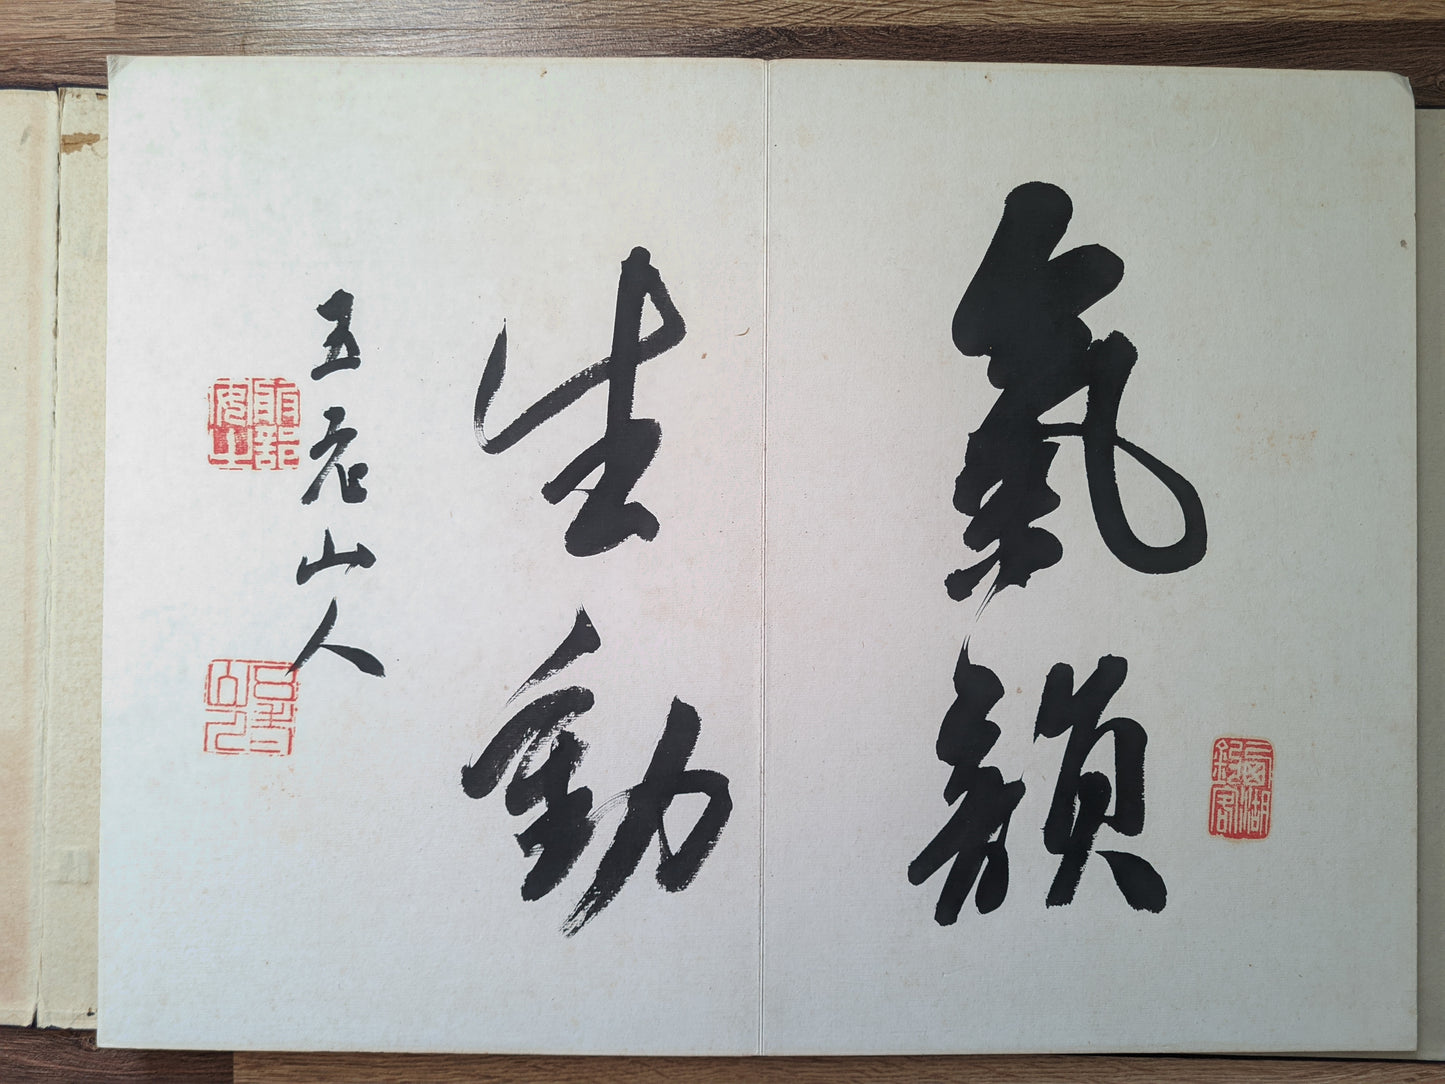 氣韻
生動
五老山人